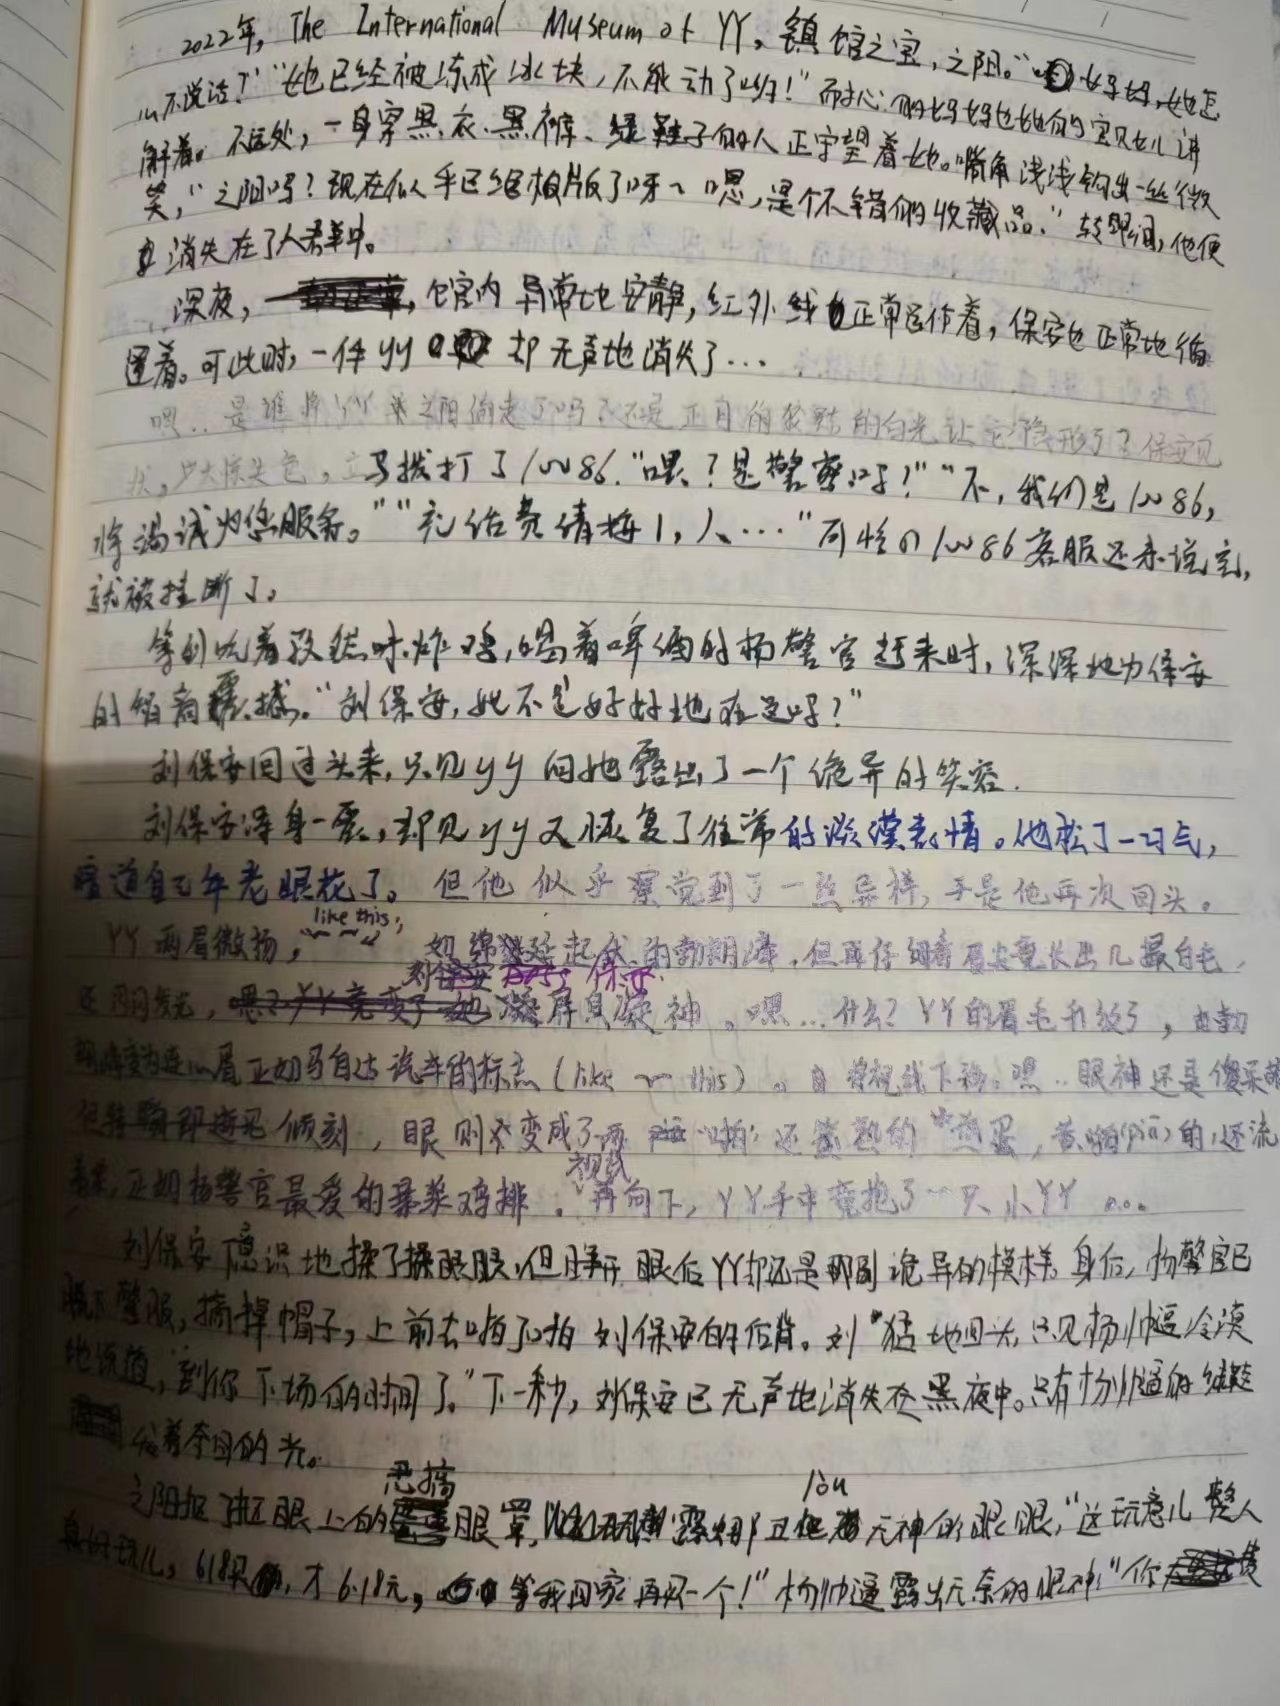 2022年, The International Museum of YY, 镇馆之宝, 之阳。"妈妈,她怎
么不说话?""她已经被冻成冰块,不能动了哟!"而耐心的妈妈也她的宝贝女儿讲
解着。不远处,一身穿黑衣、黑裤、绿鞋子的人正守望着她。嘴角浅浅钩出一丝微
笑,"之阳吗?现在似乎已经绝版了呀~嗯,是个不错的收藏品。"转眼间,他便
消失在了人群中。
深夜,馆内异常地安静,红外线正常运作着,保安也正常地循
逻着。可此时,一件yy却无声地消失了…
嘿..是谁将YY 之阳偷走了吗?还是正自前发散的白光让它隐形了?保安见
状,大惊失色,立马拨打了10086."喂?是警察吗?""不,我们是10086,
将竭诚为您服务。""充话费请按1,…"可怜的10086客服还未说完,
就被挂断了。
等到吃着孜然味炸鸡,喝着啤酒的杨警官赶来时,深深地为保安
的智商震撼。"刘保安,她不是好好地在这吗?"
刘保安回过头来,只见yy向他露出了一个诡异的笑容.
刘保安浑身一震,却见yy又恢复了往常的淡漠表情。他松了一口气,
暗道自己年老眼花了。但他似乎察觉到了一丝异样,于是他再次回头。
YY两眉微扬, like this, 如绵延起伏的勃朗峰,但再仔细看眉尖竟长出几撮白毛,
还闪闪发光, 刘保安屏息凝神。嘿…什么?YY的眉毛升级了,由勃
朗峰变为连心眉正如马自达汽车的标志(like this)。将视线下移。嘿..眼神还是傻呆
倾刻,眼则变成了两 还蒸熟的蛋,黄 的,还流
着浆,正如杨警官最爱的爆浆鸡排。视线再向下,YY手中竟抱了一只小YY …
刘保安下意识地揉了揉眼眼,但睁开眼后YY却还是那副诡异的模样。身后,杨警官已
脱下警服,摘掉帽子,上前去拍了拍刘保安的后背。刘猛地回头,只见杨帅逼冷漠
地说道,"到你下场的时间了。"下一秒,刘保安已无声地消失在黑夜中。只有杨帅逼的绿鞋
发着夺目的光。
之阳抠了抠眼上的恶搞眼罩,露出那双 无神的眼眼,"这玩意儿整人
真好玩儿,618只,才6.18元,等我回家再买一个!"杨帅逼露出无奈的眼神:"你